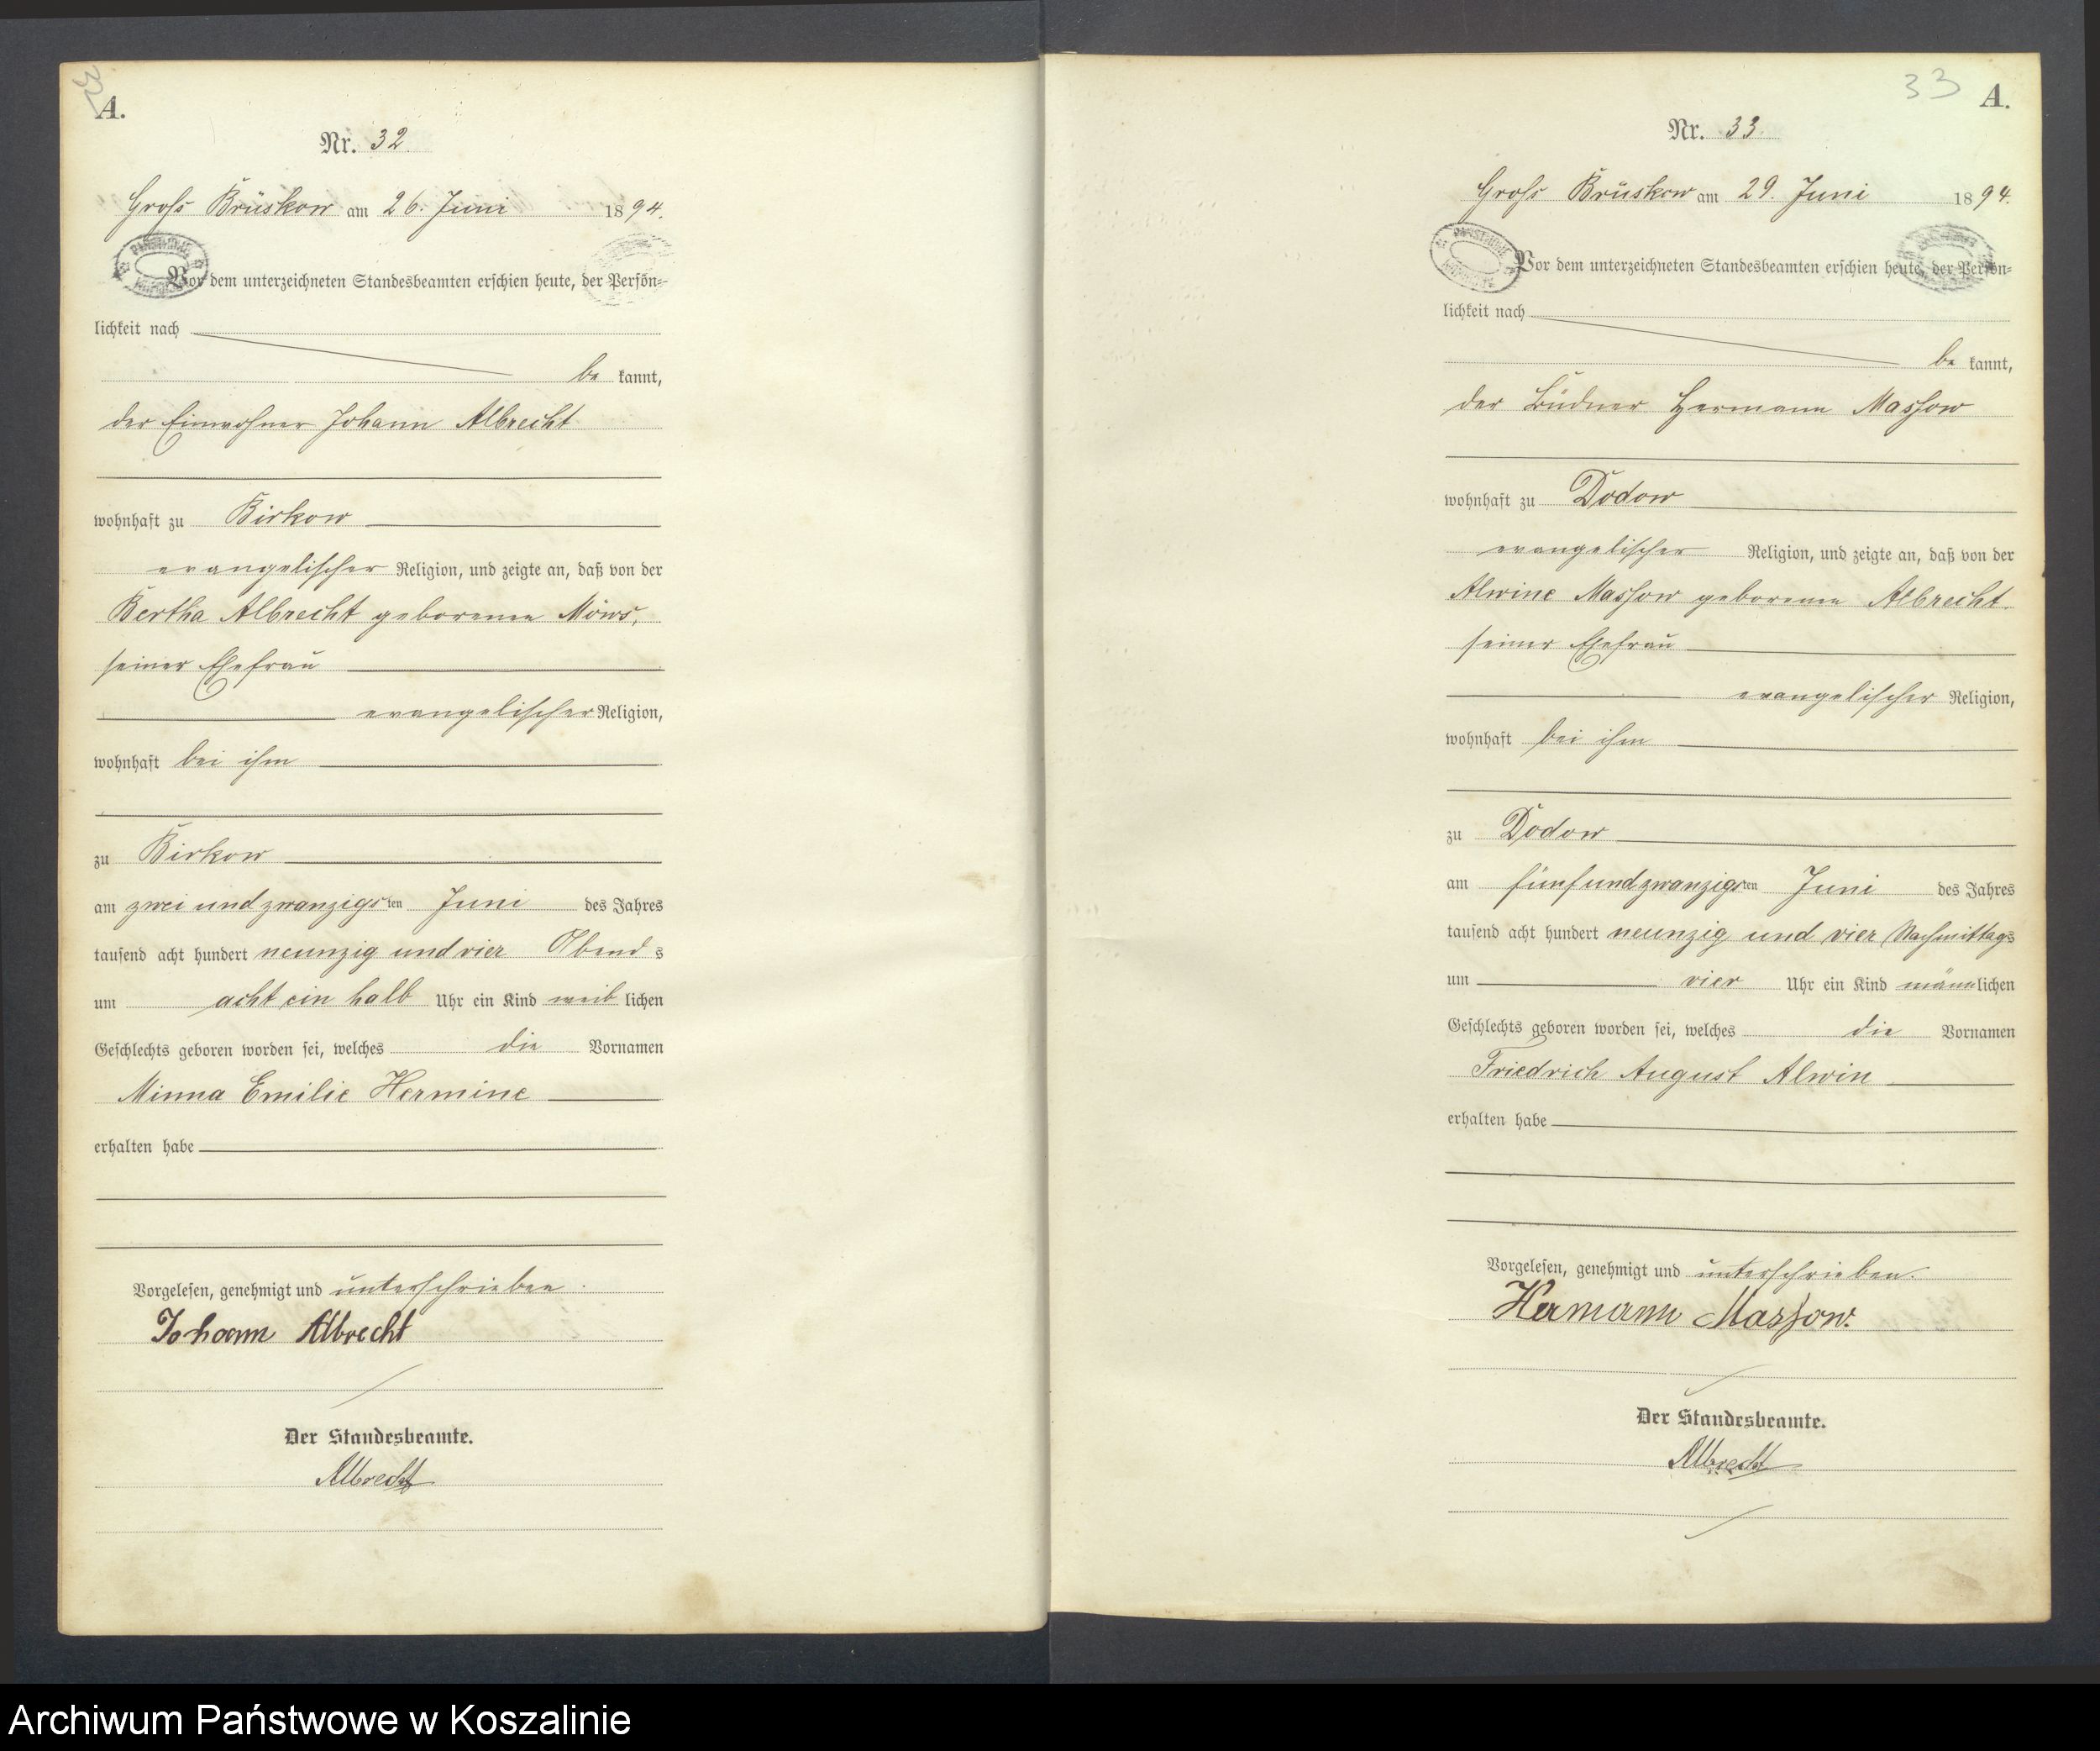 32
A.
Nr. 32.
Groß Brüskow am 26. Juni 1894.
Vor dem unterzeichneten Standesbeamten erschien heute, der Persön-
lichkeit nach
be kannt,
der Einwohner Johann Albrecht
wohnhaft zu Birkow
evangelischer Religion, und zeigte an, daß von der
Bertha Albrecht geborenen Möws,
seiner Ehefrau
evangelischer Religion,
wohnhaft bei ihm
zu Birkow
am zwei und zwanzigsten Juni des Jahres
tausend acht hundert neunzig und vier Abends
um acht ein halb Uhr ein Kind weiblichen
Geschlechts geboren worden sei, welches die Vornamen
Minna Emilie Hermine
erhalten habe
Vorgelesen, genehmigt und unterschrieben.
Johann Albrecht
Der Standesbeamte.
Albrecht
33 A.
Nr. 33.
Groß Brüskow am 29. Juni 1894.
Vor dem unterzeichneten Standesbeamten erschien heute, der Persön-
lichkeit nach
be kannt,
der Büdner Hermann Massow
wohnhaft zu Dodow
evangelischer Religion, und zeigte an, daß von der
Alwine Massow geborenen Albrecht.
seiner Ehefrau
evangelischer Religion,
wohnhaft bei ihm
zu Dodow
am fünfundzwanzigsten Juni des Jahres
tausend acht hundert neunzig und vier Nachmittags
um vier Uhr ein Kind männlichen
Geschlechts geboren worden sei, welches die Vornamen
Friedrich August Alwin
erhalten habe
Vorgelesen, genehmigt und unterschrieben.
Hermann Massow.
Der Standesbeamte.
Albrecht
Archiwum Państwowe w Koszalinie